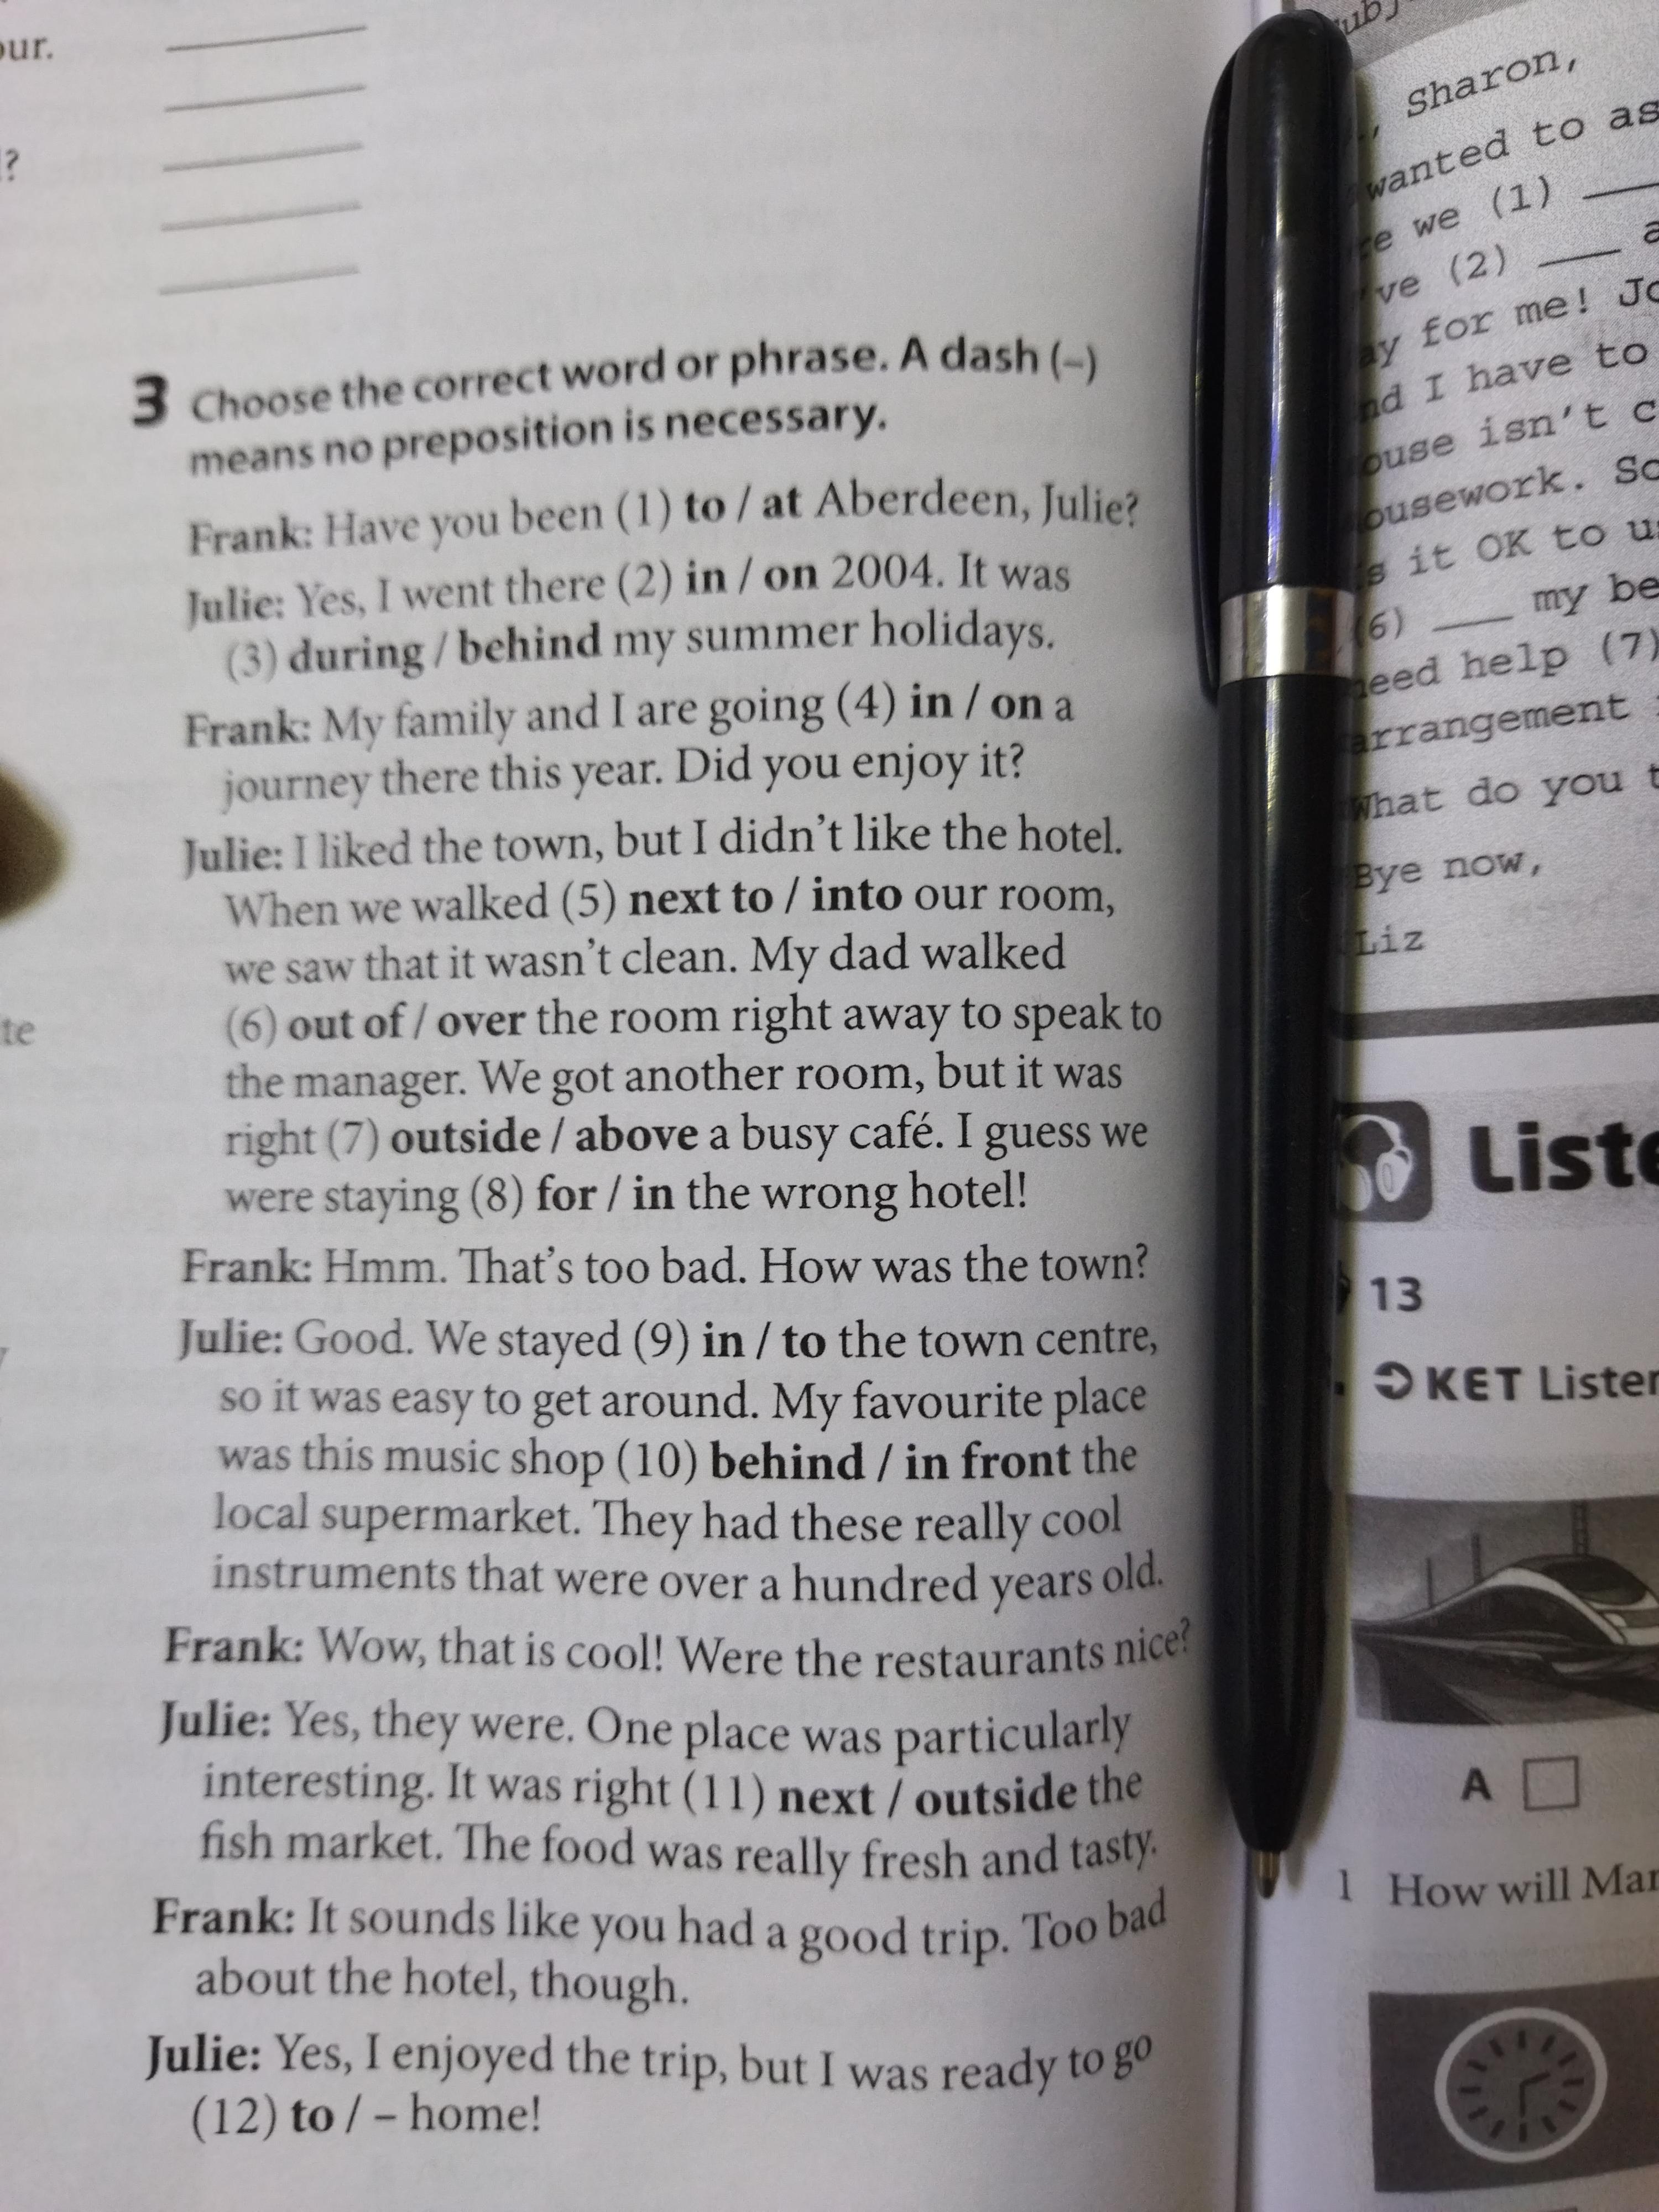 our.
?
3 Choose the correct word or phrase. A dash (–)
means no preposition is necessary.
Frank: Have you been (1) to / at Aberdeen, Julie?
Julie: Yes, I went there (2) in / on 2004. It was
(3) during / behind my summer holidays.
Frank: My family and I are going (4) in / on a
journey there this year. Did you enjoy it?
Julie: I liked the town, but I didn't like the hotel.
When we walked (5) next to / into our room,
we saw that it wasn't clean. My dad walked
(6) out of / over the room right away to speak to
the manager. We got another room, but it was
right (7) outside / above a busy café. I guess we
were staying (8) for / in the wrong hotel!
Frank: Hmm. That's too bad. How was the town?
Julie: Good. We stayed (9) in / to the town centre,
so it was easy to get around. My favourite place
was this music shop (10) behind / in front the
local supermarket. They had these really cool
instruments that were over a hundred years old.
Frank: Wow, that is cool! Were the restaurants nice?
Julie: Yes, they were. One place was particularly
interesting. It was right (11) next / outside the
fish market. The food was really fresh and tasty.
Frank: It sounds like you had a good trip. Too bad
about the hotel, though.
Julie: Yes, I enjoyed the trip, but I was ready to go
(12) to / – home!
Sharon,
wanted to
we (1)
've (2)
for me!
I have to
isn't
it OK to
(6) ___ my
need help (7)
arrangement
What do you
Bye now,
Liz
13
KET
A
1 How will